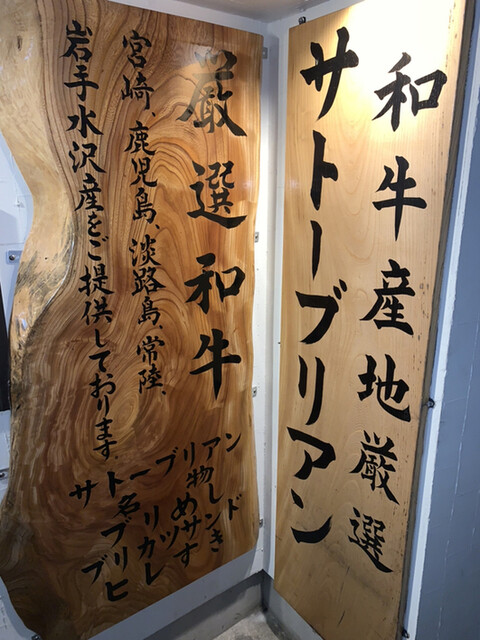 和牛産地厳選
サトーブリアン
厳選和牛
宮崎、鹿児島、淡路島、常陸、
岩手水沢産をご提供しております。
サトーブリアン
名物
ブリめし
ブリカツサンド
ヒレすき